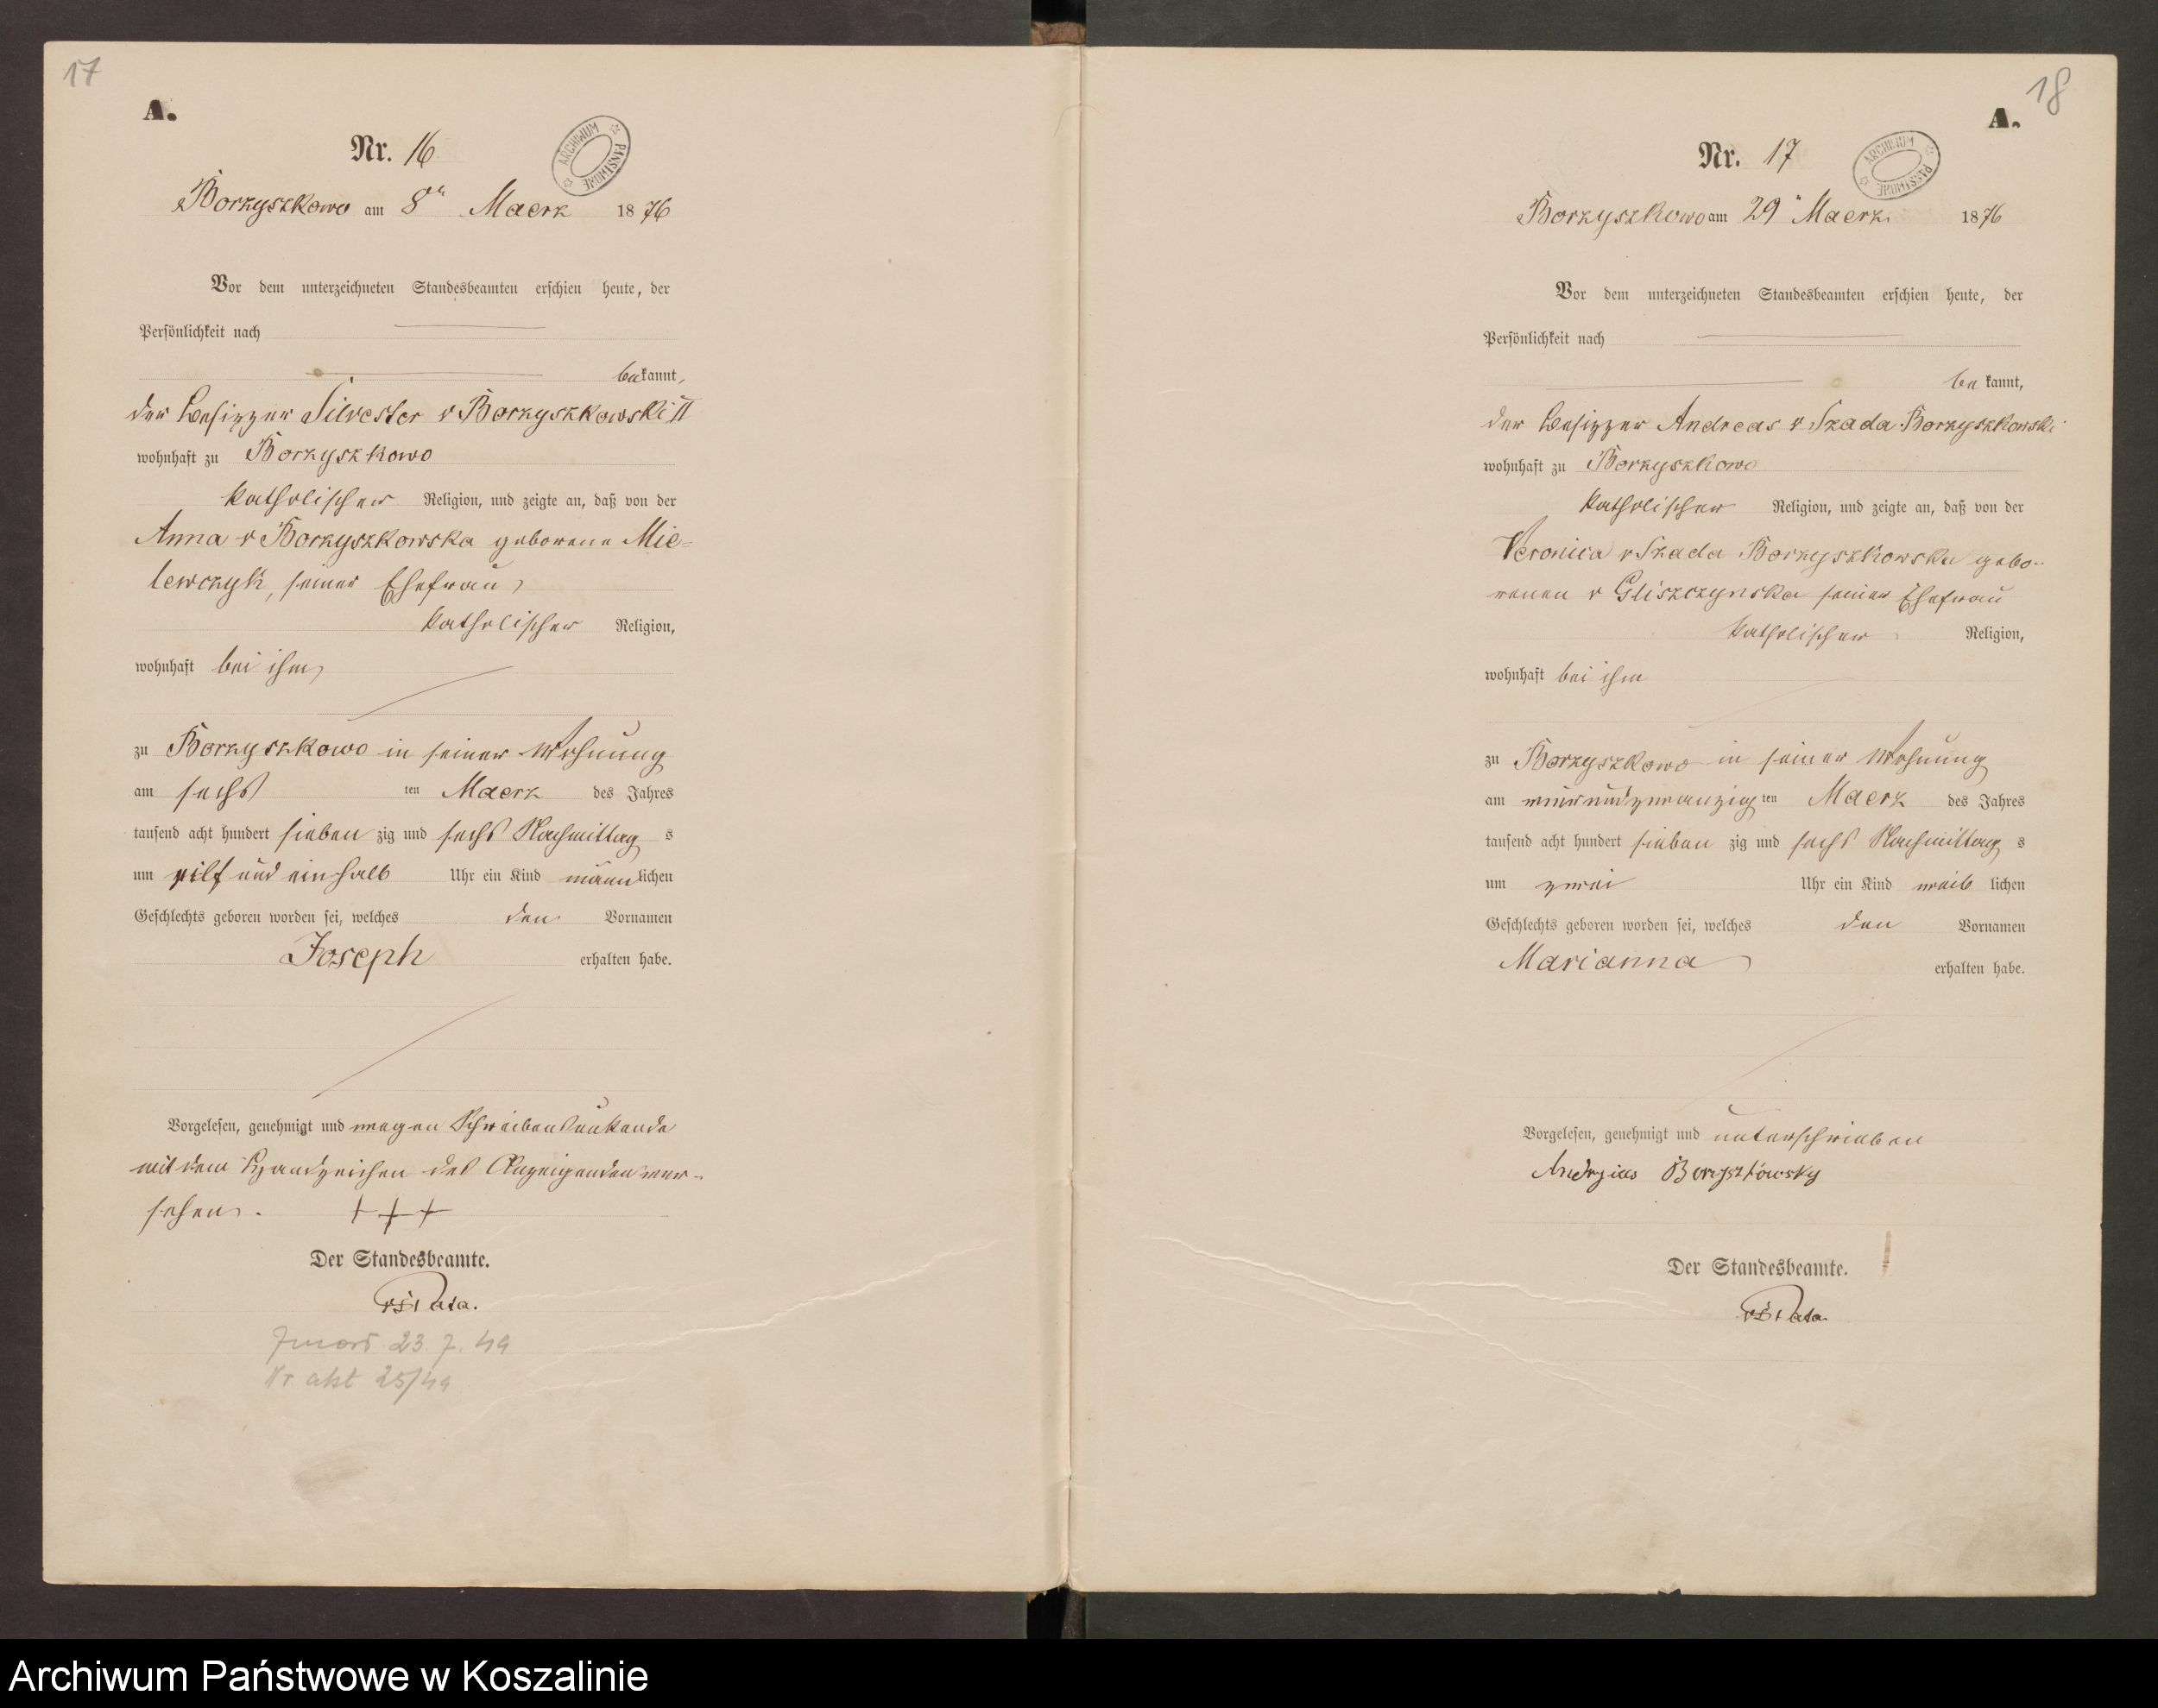 17
A.
Nr. 16
ARCHIWUM PAŃSTWOWE
Borzyszkowo am 8ten Maerz 1876
Vor dem unterzeichneten Standesbeamten erschien heute, der
Persönlichkeit nach
bekannt,
der Besitzer Silvester v Borzyszkowski II
wohnhaft zu Borzyszkowo
katholischer Religion, und zeigte an, daß von der
Anna v Borzyszkowska geborene Mie-
lewczyk, seiner Ehefrau,
katholischer Religion,
wohnhaft bei ihm,
zu Borzyszkowo in seiner Wohnung
am sechs ten Maerz des Jahres
tausend acht hundert sieben zig und sechs Nachmittag s
um eilf und ein halb Uhr ein Kind männlichen
Geschlechts geboren worden sei, welches den Vornamen
Joseph erhalten habe.
Vorgelesen, genehmigt und wegen Schreibensunkunde
mit dem Handzeichen des Anzeigenden ver-
sehen. +++
Der Standesbeamte.
Zmarł 23. 7. 49
Nr akt 25/49
18
A.
Nr. 17
ARCHIWUM PAŃSTWOWE
Borzyszkowo am 29 Maerz 1876
Vor dem unterzeichneten Standesbeamten erschien heute, der
Persönlichkeit nach
be kannt,
der Besitzer Andreas v Szada Borzyszkowski
wohnhaft zu Borzyszkowo
katholischer Religion, und zeigte an, daß von der
Veronica v Szada Borzyszkowska gebo-
renen v Gliszczynska seiner Ehefrau
katholischer Religion,
wohnhaft bei ihm
zu Borzyszkowo in seiner Wohnung
am einundzwanzig ten Maerz des Jahres
tausend acht hundert sieben zig und sechs Nachmittag s
um zwei Uhr ein Kind weib lichen
Geschlechts geboren worden sei, welches den Vornamen
Marianna erhalten habe.
Vorgelesen, genehmigt und unterschrieben
Der Standesbeamte.
Archiwum Państwowe w Koszalinie